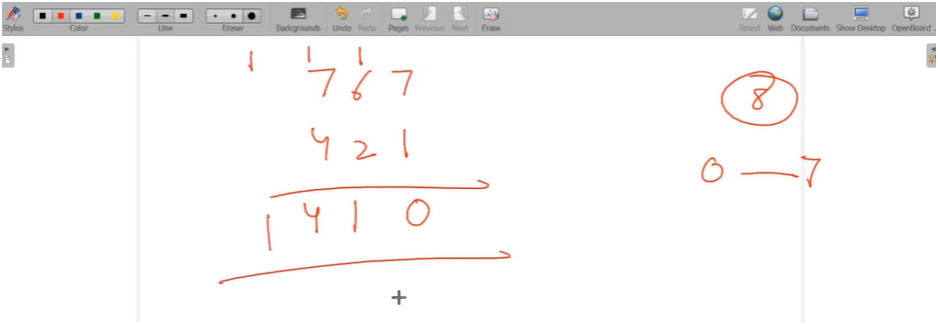 Stylus Color Line Eraser Backgrounds Undo Redo Pages Previous Next Erase Board Web Documents Show Desktop OpenBoard
1 1 1
7 6 7
4 2 1
1 4 1 0
8
0 — 7